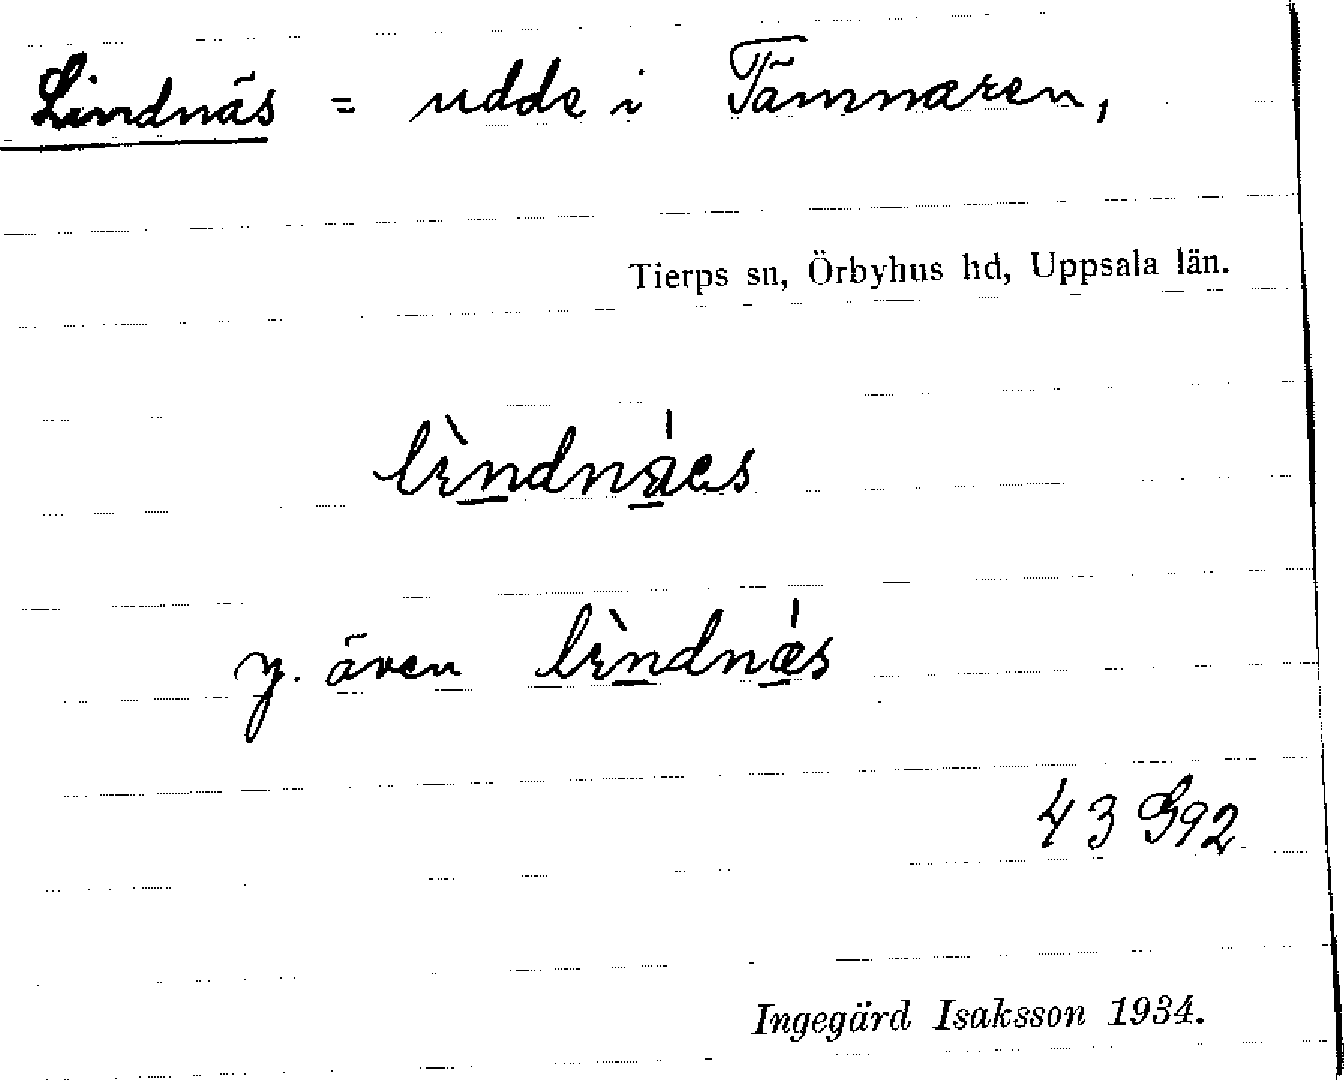 Lindnäs = udde i Tämnaren,
Tierps sn, Örbyhus hd, Uppsala län.
y. även
43 G92
Ingegärd Isaksson 1934.